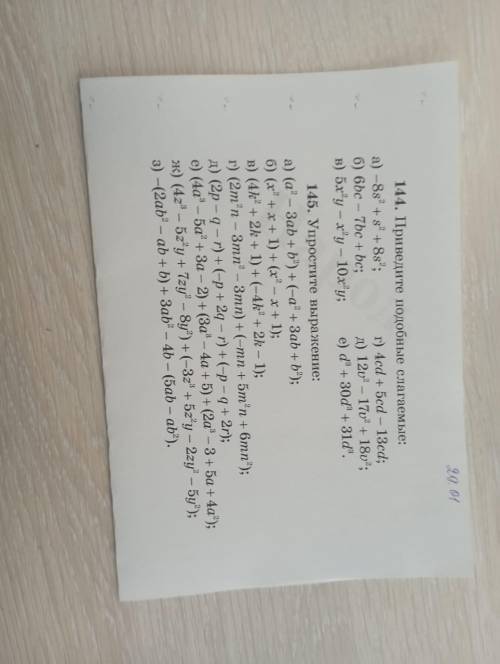 29.01
144. Приведите подобные слагаемые:
а) −8s² + s² + 8s²; г) 4cd + 5cd − 13cd;
б) 6bc − 7bc + bc; д) 12v² − 17v² + 18v²;
в) 5x²y − x²y − 10x²y; е) d³ + 30d³ + 31d³.
145. Упростите выражение:
а) (a² − 3ab + b²) + (−a² + 3ab + b²);
б) (x² + x + 1) + (x² − x + 1);
в) (4k² + 2k + 1) + (−4k² + 2k − 1);
г) (2m²n − 3mn² − 3mn) + (−mn + 5m²n + 6mn²);
д) (2p − q − r) + (−p + 2q − r) + (−p − q + 2r);
е) (4a³ − 5a² + 3a − 2) + (3a³ − 4a + 5) + (2a³ − 3 + 5a + 4a²);
ж) (4z³ − 5z²y + 7zy² − 8y²) + (−3z³ + 5z²y − 2zy² − 5y²);
з) −(2ab² − ab + b) + 3ab² − 4b − (5ab − ab²).